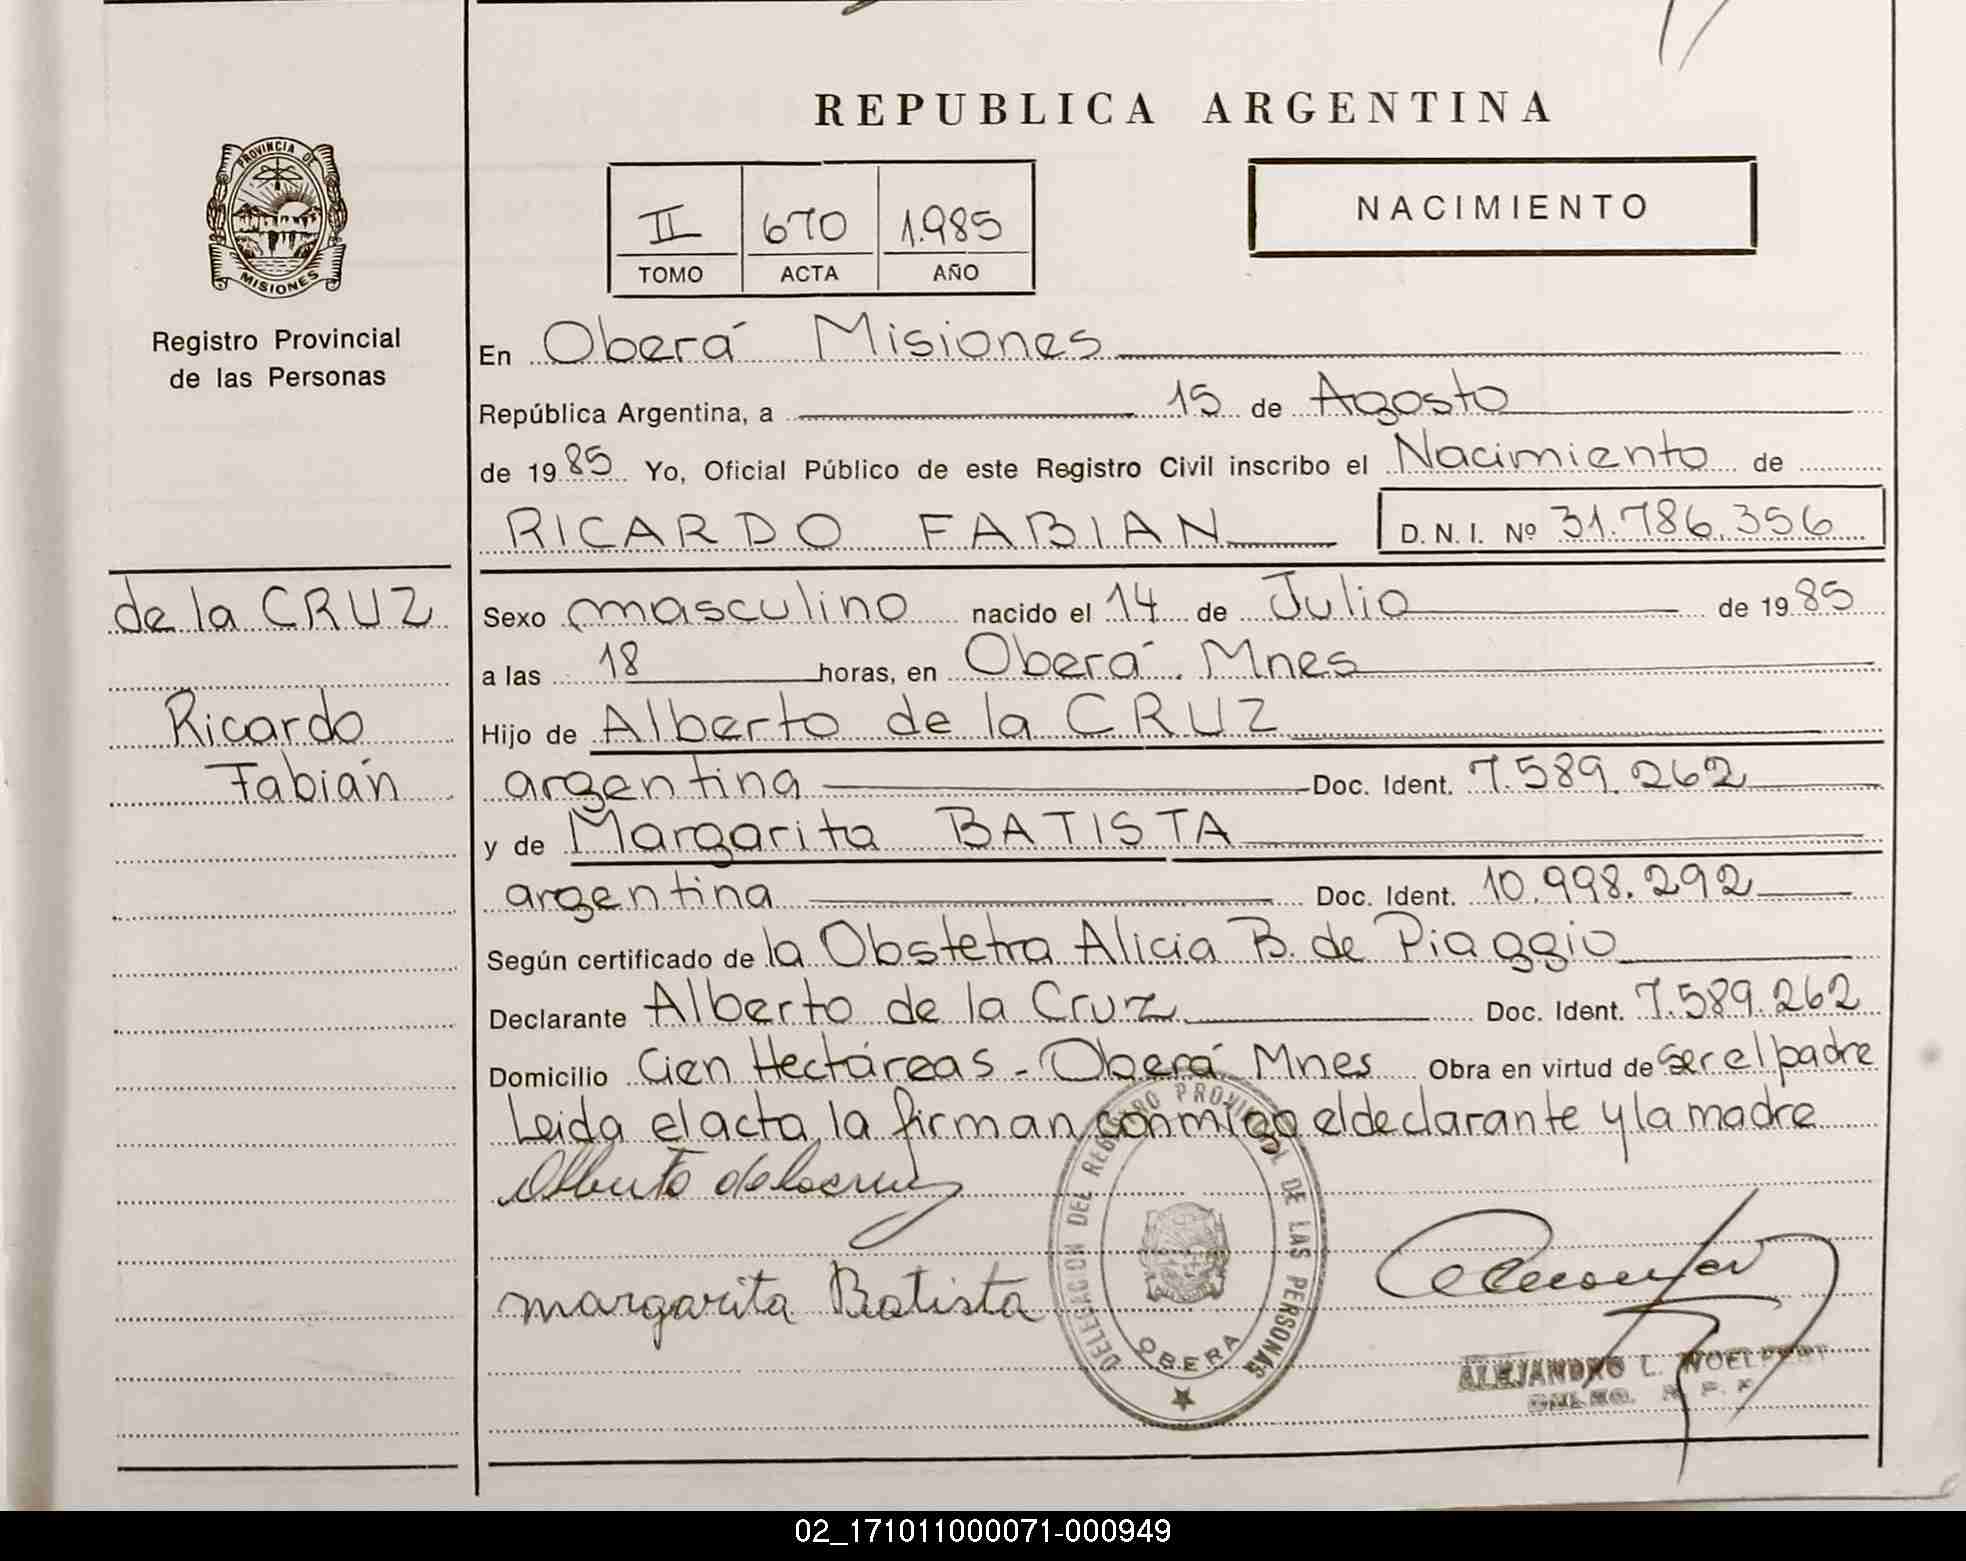 REPUBLICA ARGENTINA
PROVINCIA DE MISIONES
Registro Provincial
de las Personas
II 670 1.985
TOMO ACTA AÑO
NACIMIENTO
En Oberá Misiones
República Argentina, a 15 de Agosto
de 1985 Yo, Oficial Público de este Registro Civil inscribo el Nacimiento de
RICARDO FABIAN D. N. I. Nº 31.786.356
de la CRUZ
Ricardo
Fabián
Sexo masculino nacido el 14 de Julio de 1985
a las 18 horas, en Oberá. Mnes
Hijo de Alberto de la CRUZ
argentina Doc. Ident. 7.589.262
y de Margarita BATISTA
argentina Doc. Ident. 10.998.292
Según certificado de la Obstetra Alicia B. de Piaggio
Declarante Alberto de la Cruz Doc. Ident. 7.589.262
Domicilio Cien Hectáreas - Oberá Mnes Obra en virtud de ser el padre
Leida el acta, la firman conmigo el declarante y la madre
Alberto delacruz
margarita Batista
DELEGACION DEL REGISTRO PROVINCIAL DE LAS PERSONAS
OBERA
ALEJANDRO L.
02_171011000071-000949